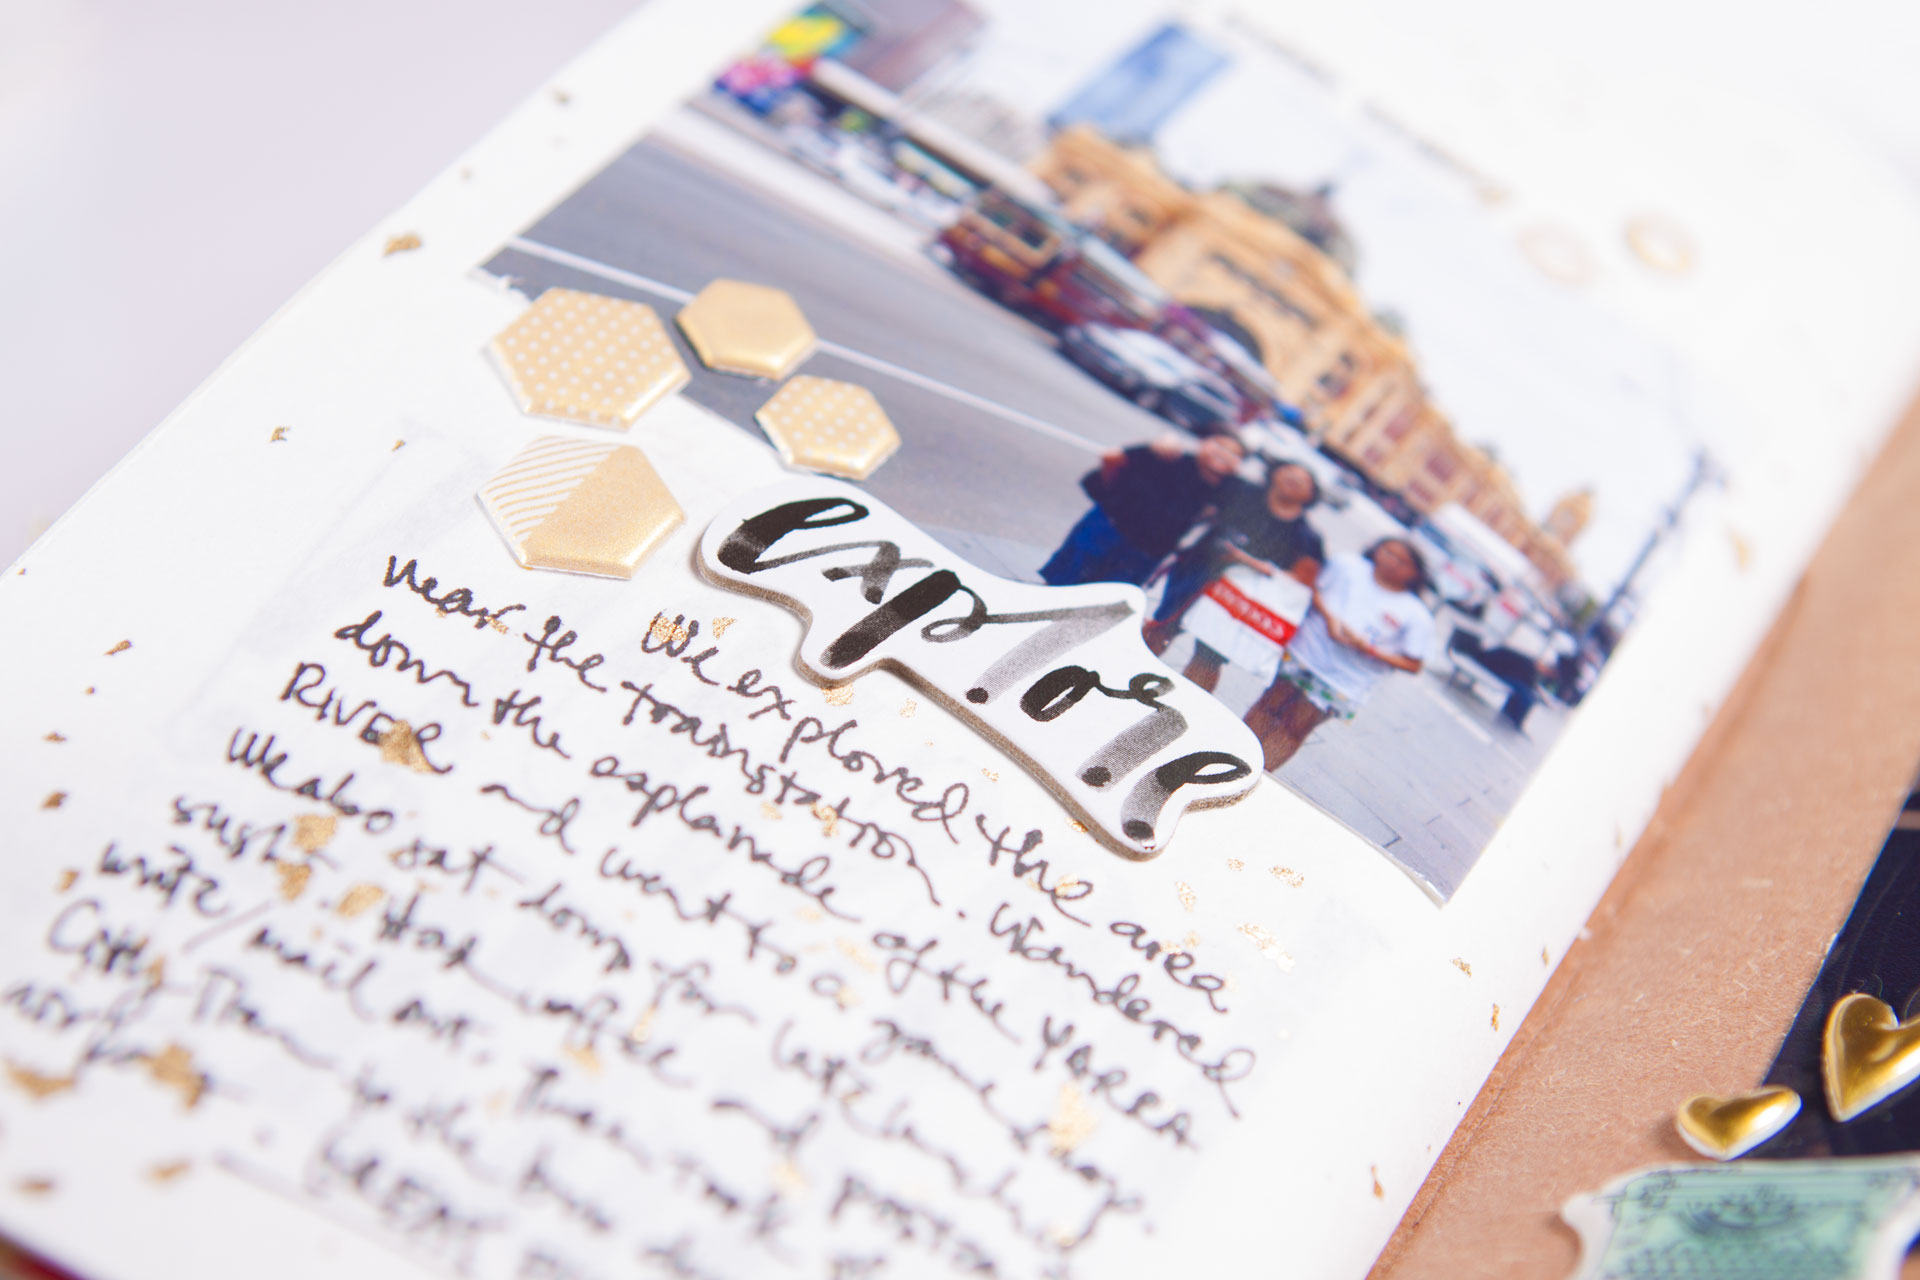 explore
We explored the area
near the trainstation. Wandered
down the esplanade of the YARRA
RIVER and went to a game
We also sat down for late lunch
sushi. Had coffee and
write/mail out. Then took
City. Then to the